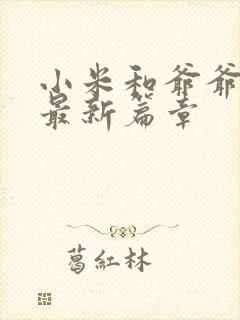 小米和爷爷
最新篇章
葛紅林